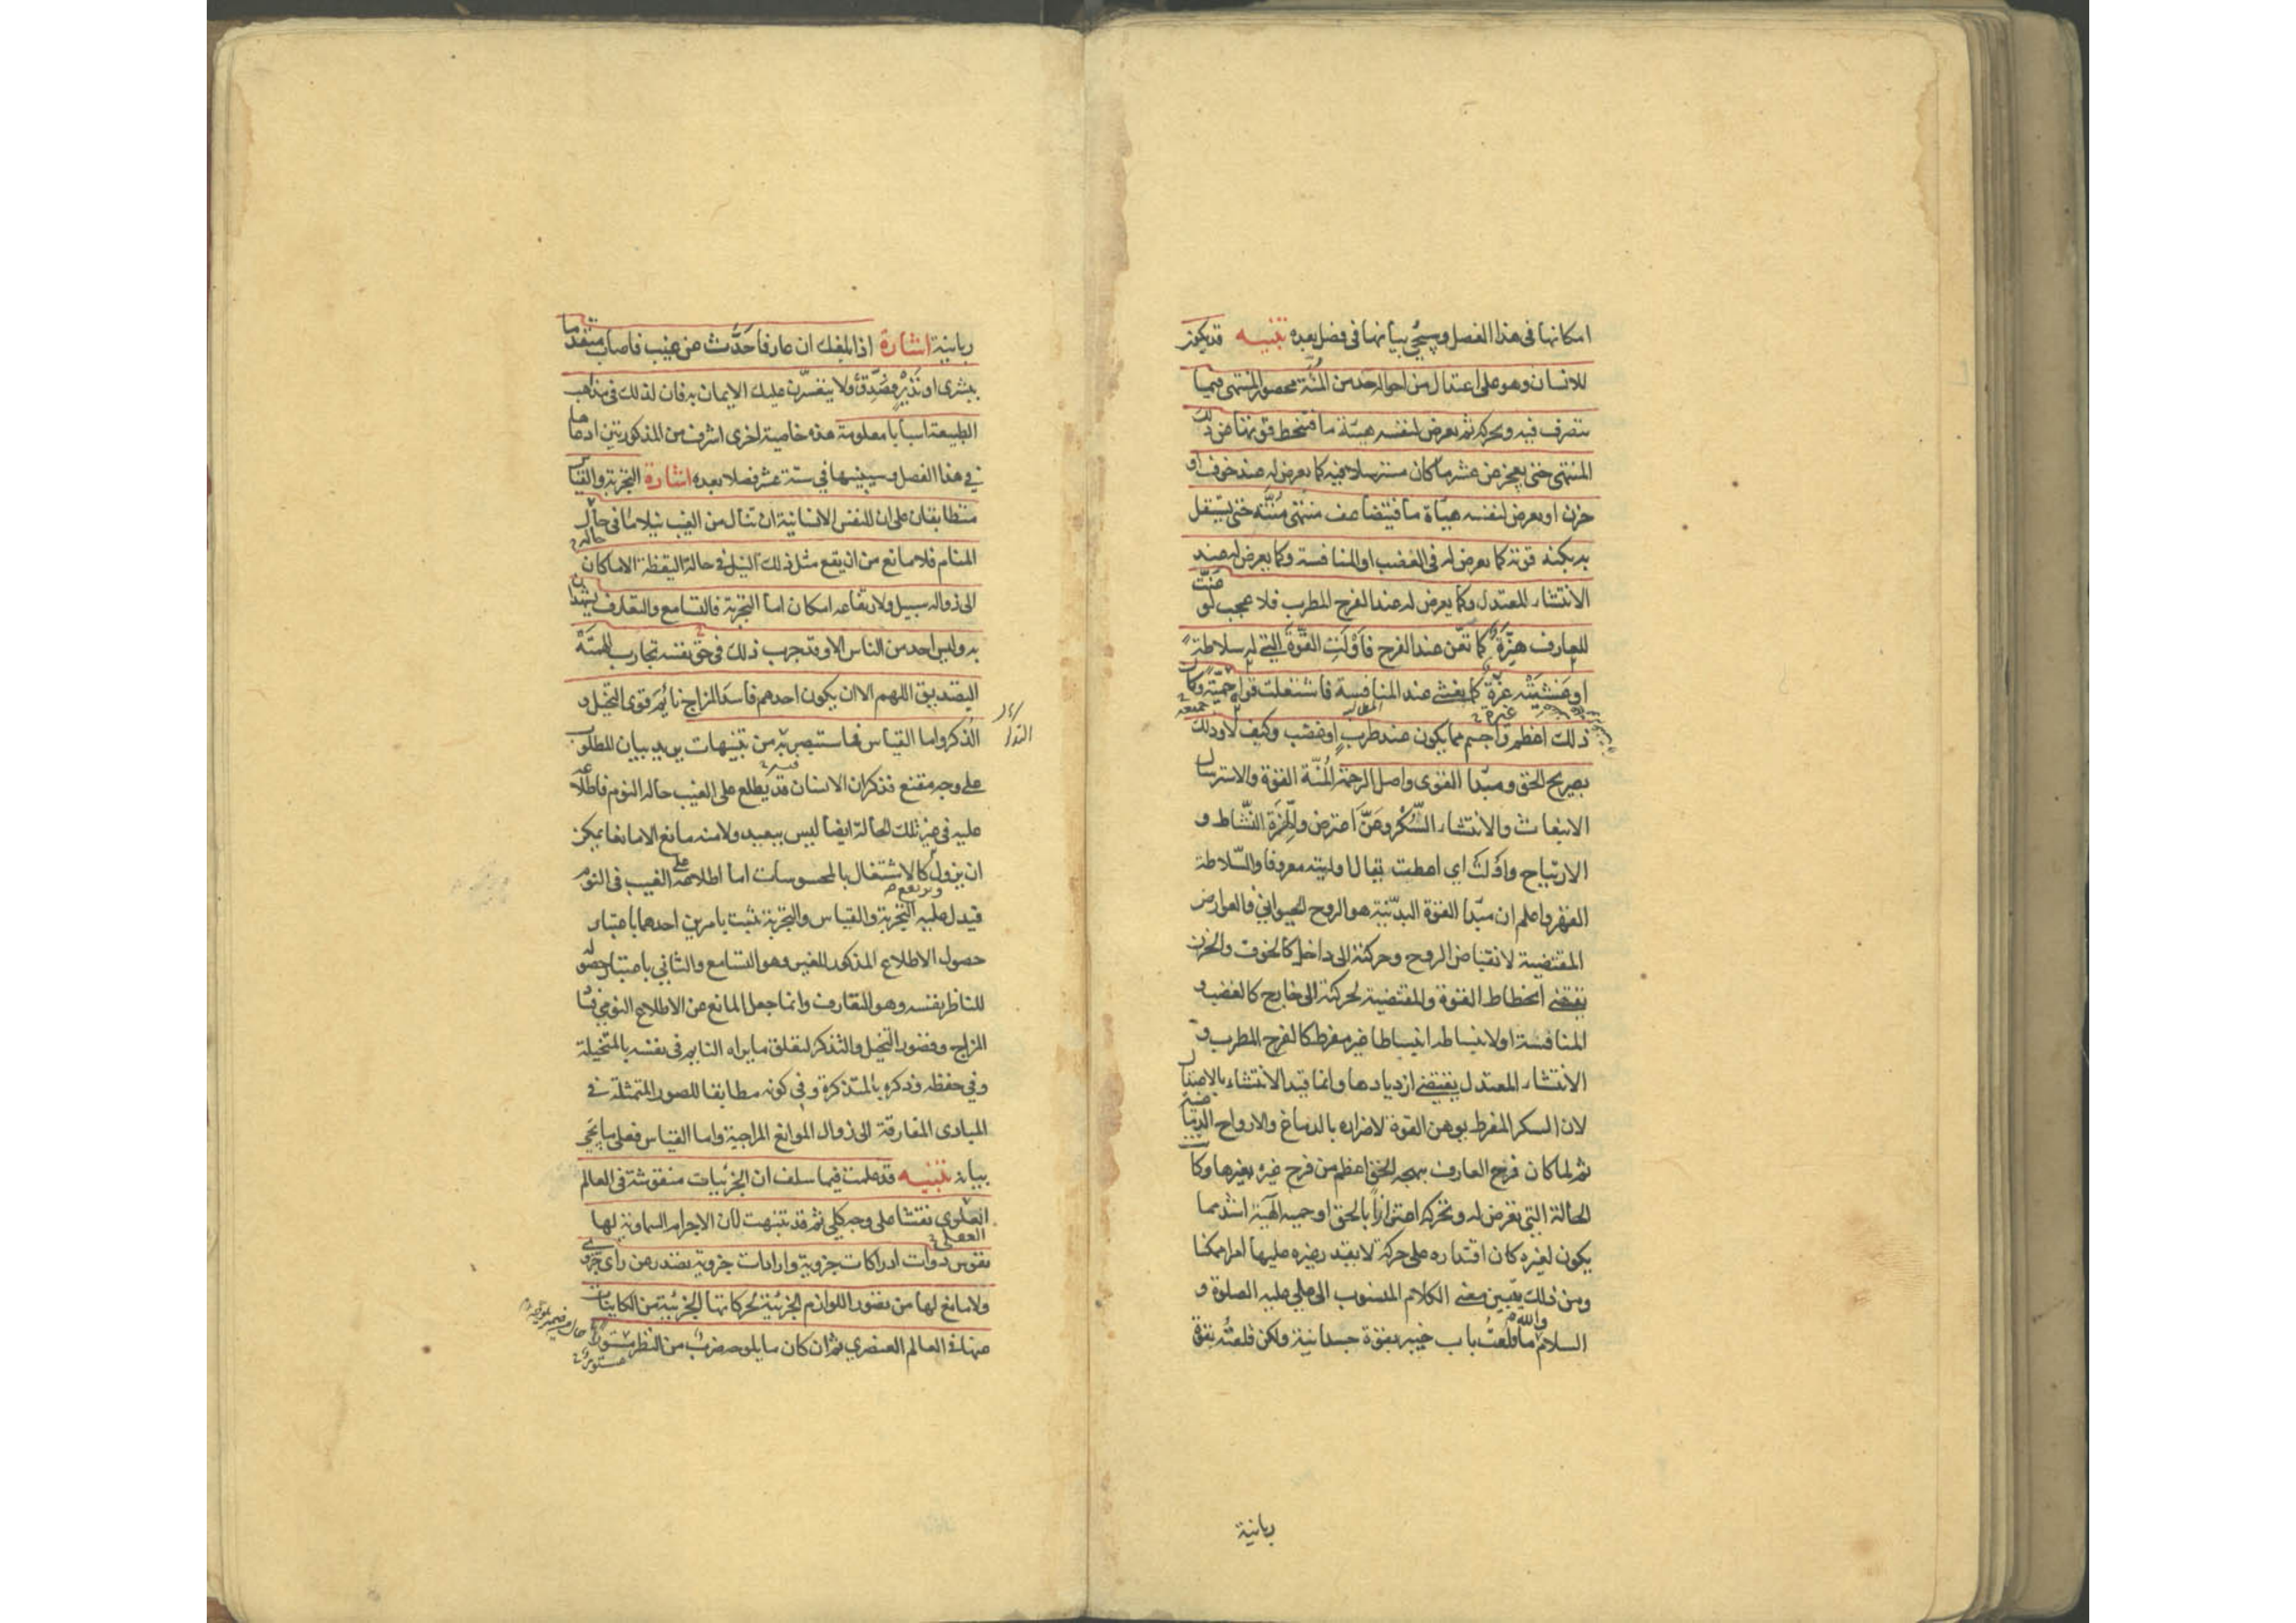 امكانها فى هذا الفصل وسيجئ بيانها فى فصل بعده تنبيه قد يكون
للانسان وهو على اعتدال من احواله حد من المُنّة محصور المنتهى فيما
يتصرف فيه ويحركه ثم يعرض لنفسه هيئة ما فتنحط قوتها عن ذلك
المنتهى حتى يعجز عن عشر ما كان مسترسلا فيه كما يعرض له عند خوف او
حزن او يعرض لنفسه هيأة ما فيتضاعف منتهى مُنّته حتى يستقل
به بكنه قوته كما يعرض له فى الغضب او المنافسة وكما يعرض له عند
الانتشاء المعتدل وكما يعرض له عند الفرح المطرب فلا عجب لو عَنّت
للعارف هِزّة كما تعن عند الفرح فاَوْلَت القوة التي له سلاطة
او غشيته عزة كما يغشى عند المنافسة فاشتعلت قواه حمية وكان
ذلك اعظم واجسم مما يكون عند طرب او غضب وكيف لا وذلك
بصريح الحق ومبدأ القوى واصل الرحمة المُنّة القوة والاسترسال
الانبعاث والانتشاء السُّكْر وعَنَّ اعترض والهِزّة النشاط و
الارتياح واَوْلت اي اعطت يقال اوليته معروفا والسّلاطة
القهر واعلم ان مبدأ القوة البدنية هو الروح الحيواني فالعوارض
المقتضية لانقباض الروح وحركته الى داخل كالخوف والحزن
يقتضي انحطاط القوة والمقتضية لحركته الى خارج كالغضب و
المنافسة او لانبساطه انبساطا غير مفرط كالفرح المطرب و
الانتشاء المعتدل يقتضي ازديادها وانما قيد الانتشاء بالاعتدال
لان السكر المفرط يوهن القوة لاضراره بالدماغ والارواح الدماغية
ثم لما كان فرح العارف ببهجة الحق اعظم من فرح غيره بغيرها وكانت
الحالة التي تعرض له وتحركه اعتزازاً بالحق او حمية الهية اشد مما
يكون لغيره كان اقتداره على حركة لا يقدر غيره عليها امرا ممكنا
ومن ذلك يتعين معنى الكلام المنسوب الى علي عليه الصلوة و
السلام والله ما قلعتُ باب خيبر بقوة جسدانية ولكن قلعتُه بقوة
ربانية
ربانية اشارة اذا بلغك ان عارفا حَدّث عن غيب فاصاب متقدما
ببشرى او نذير فصدّق ولا يتعسّرن عليك الايمان به فان لذلك فى مذاهب
الطبيعة اسبابا معلومة هذه خاصية اخرى اشرف من المذكورتين ادعاها
في هذا الفصل وسيبينها في ستة عشر فصلا بعده اشارة التجربة والقياس
متطابقان على ان للنفس الانسانية ان تنال من الغيب نيلا ما فى حالة
المنام فلا مانع من ان يقع مثل ذلك النيل فى حالة اليقظة الا ما كان
الى زواله سبيل ولارتفاعه امكان اما التجربة فالتسامع والتعارف يشهدان
به وليس احد من الناس الا وقد جرب ذلك فى حق نفسه تجارب الهمته
التصديق اللهم الا ان يكون احدهم فاسد المزاج نائم قوى التخيل و
الذكر واما القياس فما ستبصر به من تنبيهات يريد بيان المطلوب
على وجه مقنع فذكر ان الانسان قد يطلع على الغيب حالة النوم فاطلاعه
عليه فى غير تلك الحالة ايضا ليس ببعيد ولا منه مانع الا مانعا يمكن
ان يزول ويرتفع كالاشتغال بالمحسوسات اما اطلاعه على الغيب فى النوم
فيدل عليه التجربة والقياس والتجربة تثبت بامرين احدهما باعتبار
حصول الاطلاع المذكور للغير وهو التسامع والثاني باعتبار حصوله
للناظر بنفسه وهو التعارف وانما جعل المانع عن الاطلاع النومي فساد
المزاج وقصور التخيل والتذكر لتعلق ما يراه النايم فى نفسه بالمتخيلة
وفي حفظه وذكره بالمتذكرة وفى كونه مطابقا للصور المتمثلة فى
المبادى المفارقة الى زوال الموانع المزاجية واما القياس فعلى ما يجئ
بيانه تنبيه قد علمت فيما سلف ان الجزئيات منقوشة فى العالم
العلوي نقشا على وجه كلي ثم قد تنبهت لان الاجرام السماوية لها
نفوس ذوات ادراكات جزوية وارادات جزوية تصدر عن راى جزوي
ولا مانع لها من تصور اللوازم الجزئية لحركاتها الجزئية من الكاينات
عنها فى العالم العنصري ثم ان كان ما يلوحه ضرب من النظر مستورا